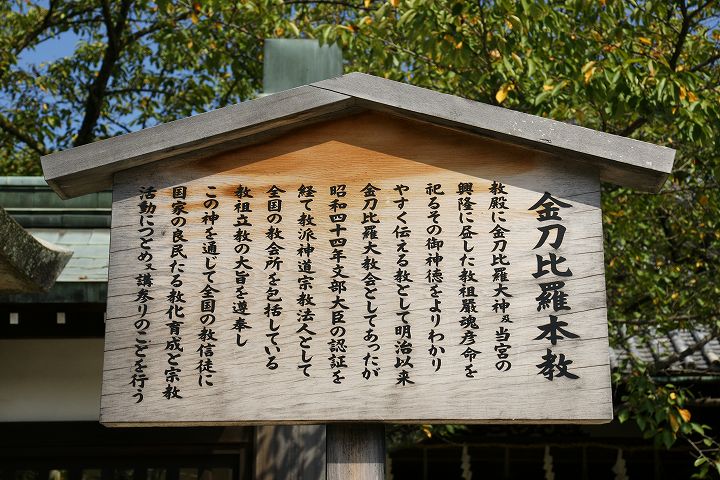 金刀比羅本教
教殿に金刀比羅大神及当宮の
興隆に尽した教祖厳魂彦命を
祀るその御神徳をよりわかり
やすく伝える教として明治以来
金刀比羅大教会としてあったが
昭和四十四年文部大臣の認証を
経て教派神道宗教法人として
全国の教会所を包括している
教祖立教の大旨を遵奉し
この神を通じて全国の教信徒に
国家の良民たる教化育成と宗教
活動につとめ又講参りのことを行う